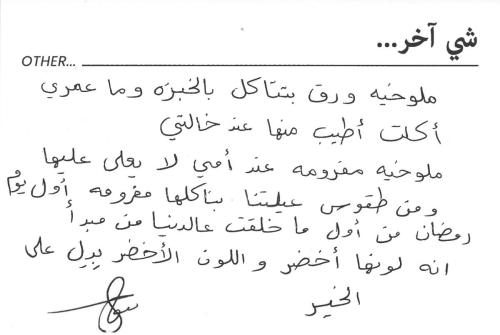 شي آخر...
OTHER...
ملوخيه ورق بتتاكل بالخبزه وما عمري
أكلت أطيب منها عند خالتي
ملوخيه مفرومه عند أمي لا يعلى عليها
ومن طقوس عيلتنا بناكلها مفرومه أول يوم
رمضان من أول ما خلقت عالدنيا من مبدأ
انه لونها أخضر و اللون الأخضر بيدل على
الخير